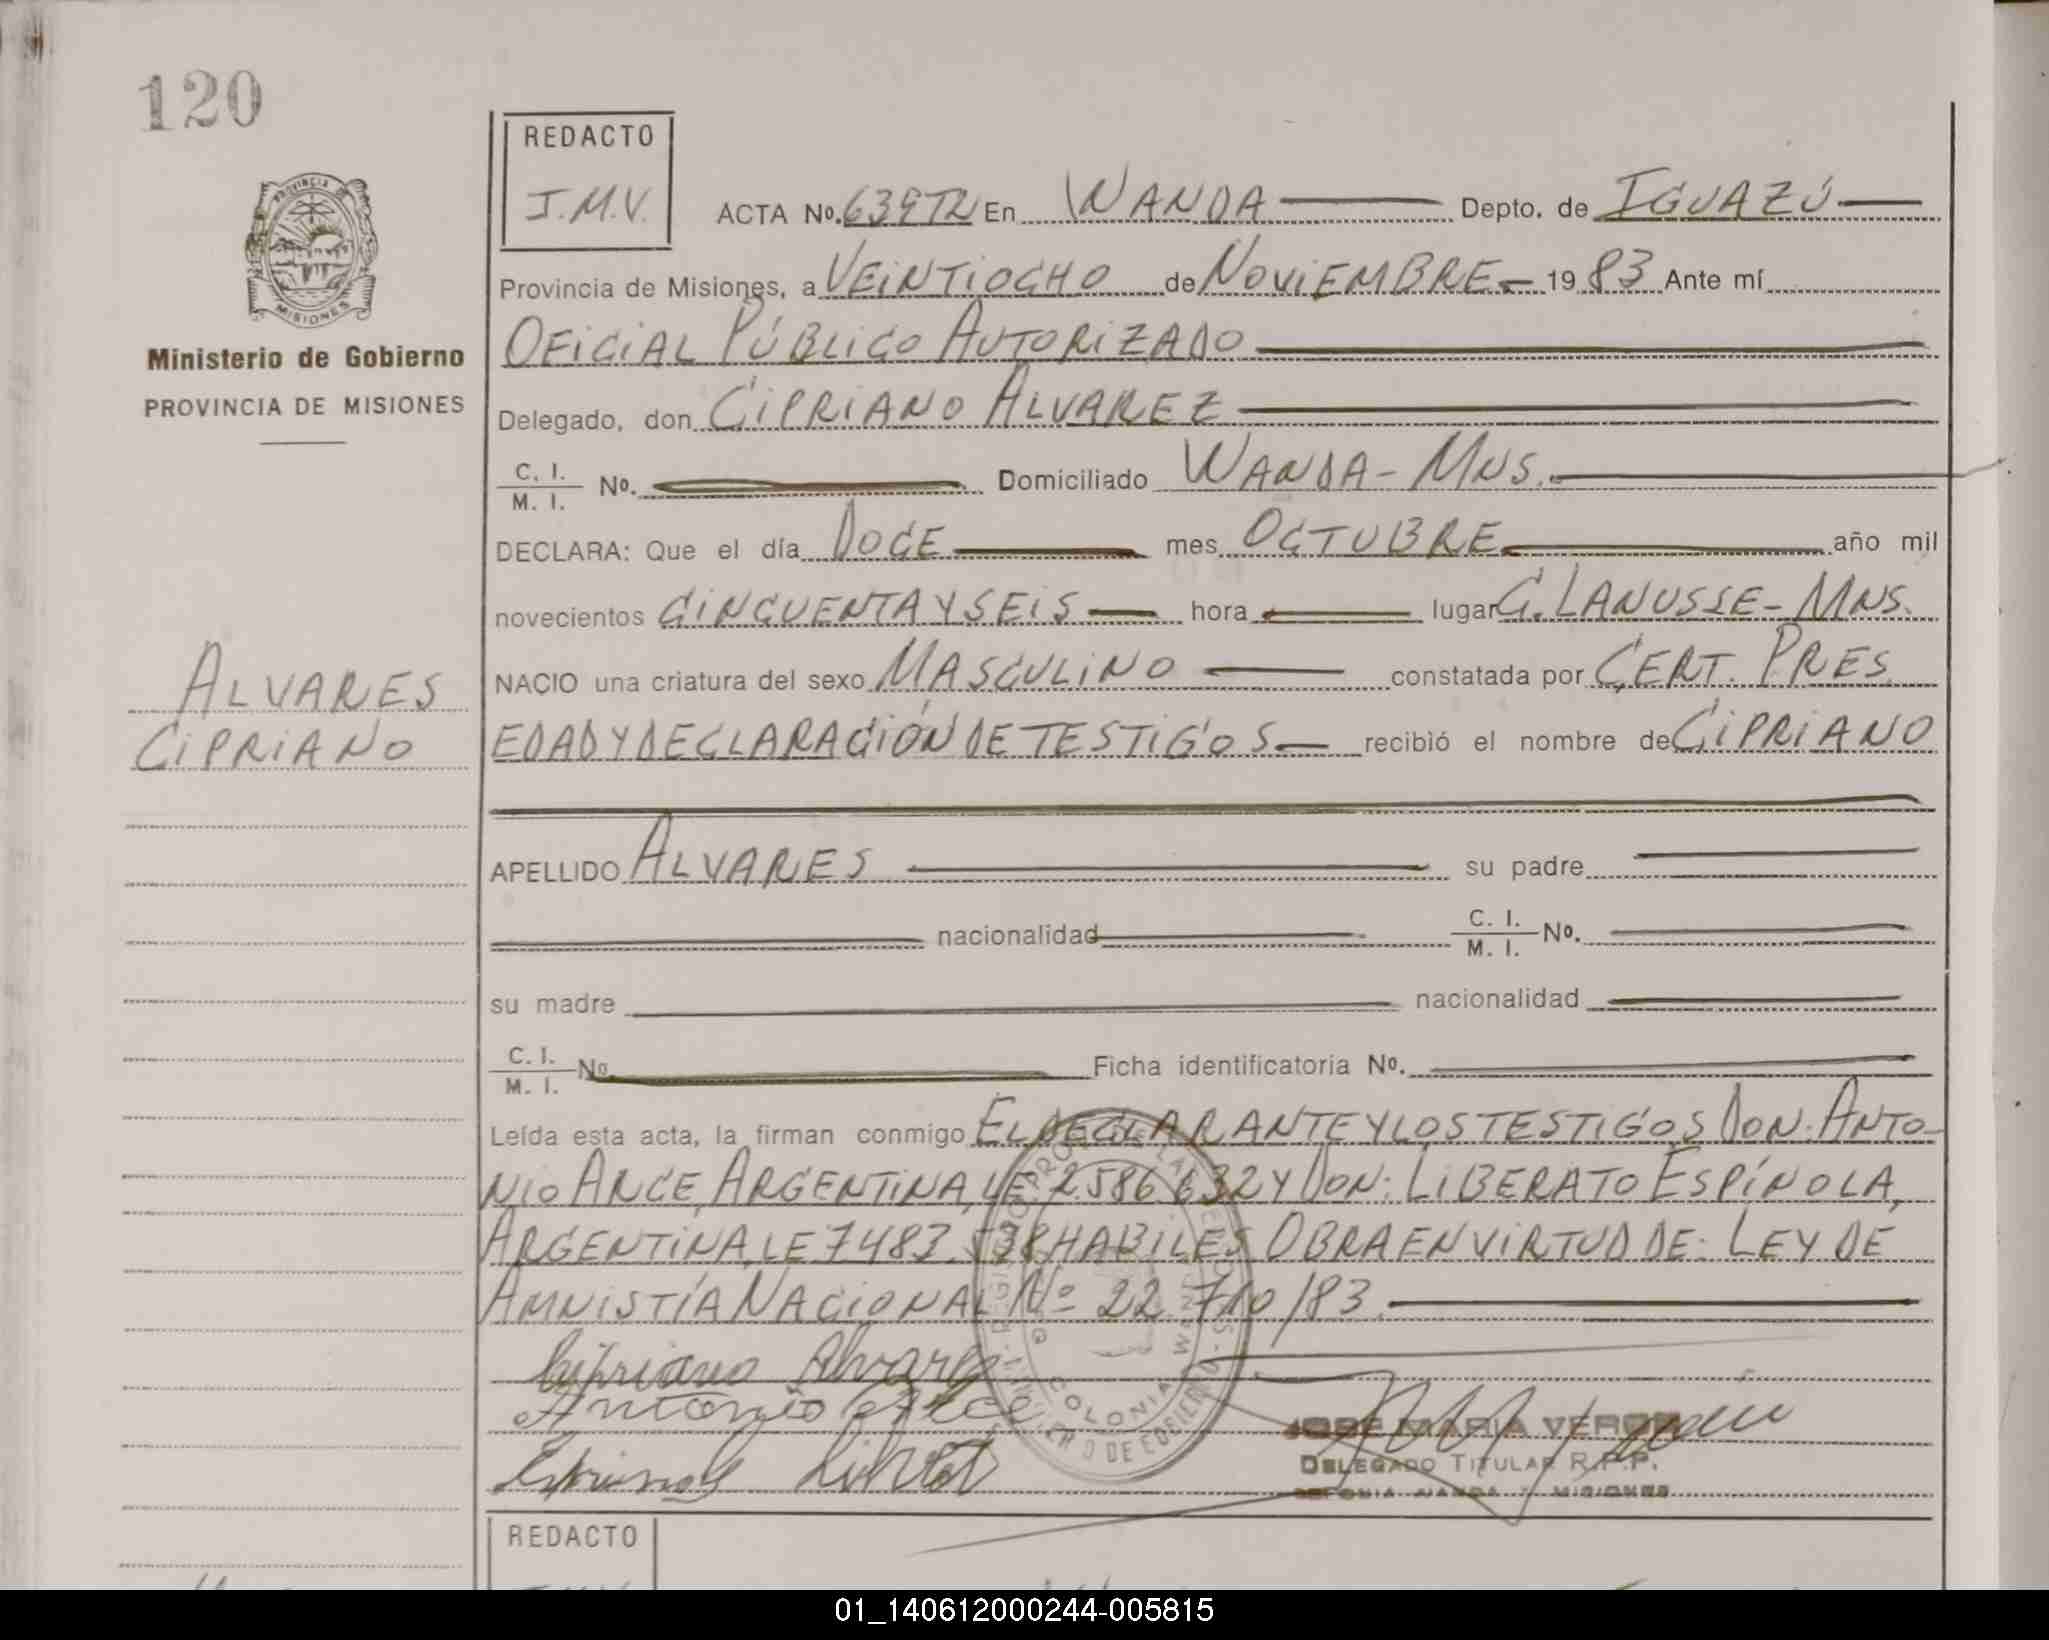 120
REDACTO
J.M.V.
ACTA No. 639 T2 En WANDA Depto. de IGUAZÚ
Provincia de Misiones, a VEINTIOCHO de NOVIEMBRE 1983 Ante mí
OFICIAL PÚBLICO AUTORIZADO
Delegado, don CIPRIANO ALVAREZ
C. I. M. I. No. Domiciliado WANDA - MNS.
DECLARA: Que el día DOCE mes OCTUBRE año mil
novecientos CINCUENTA Y SEIS hora lugar G. LANUSSE - MNS.
NACIO una criatura del sexo MASCULINO constatada por CERT. PRES.
EDAD Y DECLARACIÓN DE TESTIGOS recibió el nombre de CIPRIANO
APELLIDO ALVARES su padre
nacionalidad C. I. M. I. No.
su madre nacionalidad
C. I. M. I. No. Ficha identificatoria No.
Leída esta acta, la firman conmigo EL DECLARANTE Y LOS TESTIGOS DON: ANTO-
NIO ARCE, ARGENTINA, LE 2.586.632 Y DON: LIBERATO ESPÍNOLA,
ARGENTINA, LE 7483 HABILES OBRA EN VIRTUD DE: LEY DE
AMNISTÍA NACIONAL Nº 22.710/83
Cipriano Alvarez
Antonio Arce
JOSE MARIA VERON
DELEGADO TITULAR R.P.P.
COLONIA WANDA - MISIONES
PROVINCIA DE
MISIONES
Ministerio de Gobierno
PROVINCIA DE MISIONES
ALVARES
CIPRIANO
REDACTO
01_140612000244-005815